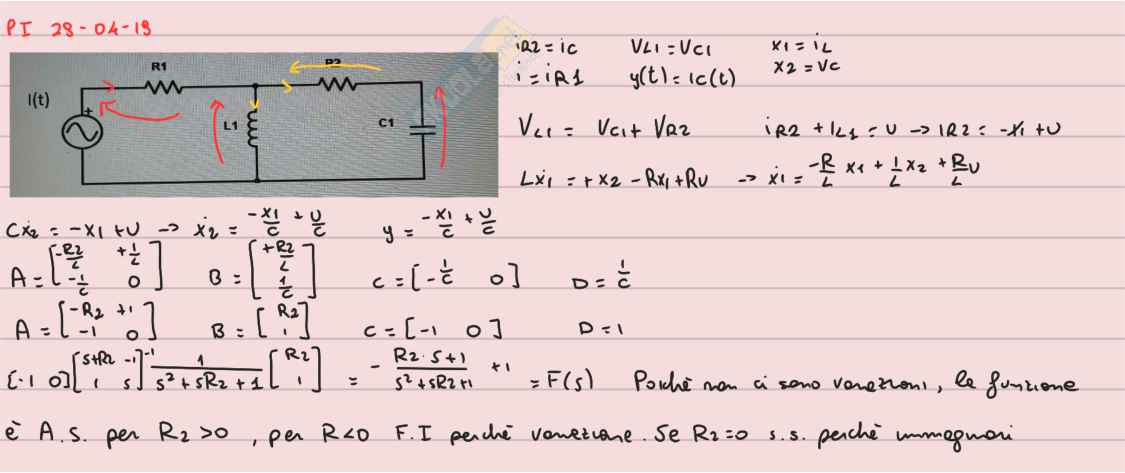 PI 29-04-19
R1
R2
I(t)
L1
C1
iR2 = iC    VL1 = VC1    x1 = iL
i = iR1    y(t) = ic(t)    x2 = VC
VL1 = VC1 + VR2    iR2 + iL1 = U -> iR2 = -x1 + U
Lẋ1 = +x2 - Rx1 + RU -> ẋ1 = -R/L x1 + 1/L x2 + R/L U
Cẋ2 = -x1 + U -> ẋ2 = -x1/C + U/C    y = -x1/C + U/C
A = [-R2/L +1/L; -1/C 0]    B = [+R2/L; 1/C]    C = [-1/C 0]    D = 1/C
A = [-R2 +1; -1 0]    B = [R2; 1]    C = [-1 0]    D = 1
[-1 0][s+R2 -1; 1 s]^-1 1/(s²+sR2+1) [R2; 1] = -(R2·s+1)/(s²+sR2+1) +1 = F(s)    Poichè non ci sono variazioni, la funzione
è A.S. per R2 > 0, per R<0 F.I perchè variazione. Se R2=0 s.s. perchè immaginari